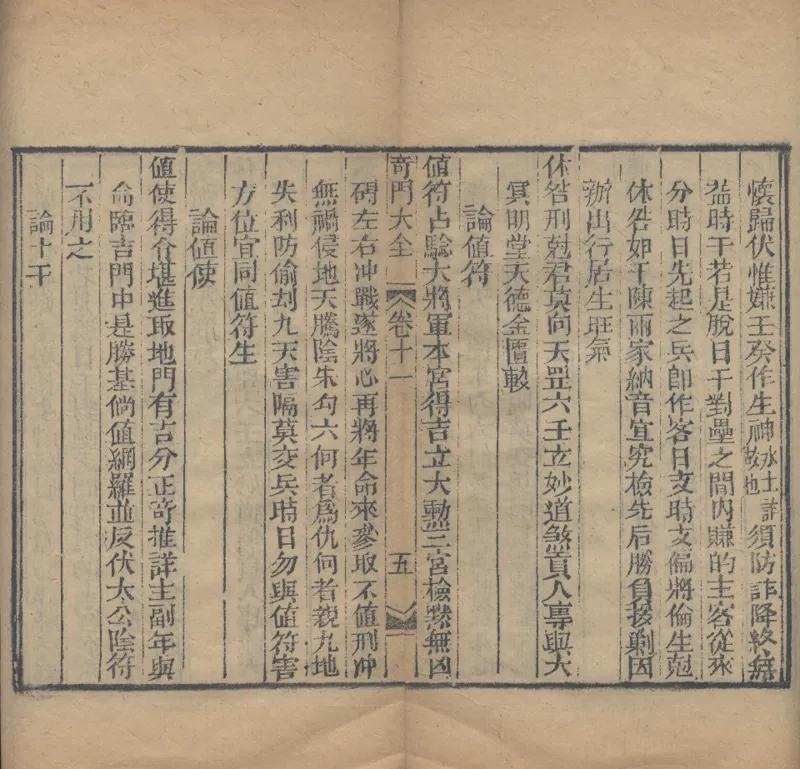 懷歸伏惟嫌壬癸作生神水土詳故也須防詐降終無
益時干若是脫日干對壘之間內賺的主客從來
分時日先起之兵即作客日支時支偏將倫生剋
休咎如干陳兩家納音宜究檢先后勝負接剩因
辦出行居生旺氣
休咎刑剋君莫向天罡六壬立妙道煞貴人專與大
冥明堂天德金匱較
論值符
值符占驗大將軍本宮得吉立大勳三宮檢點無凶
奇門大全 卷十一 五
碍左右冲戰遂將心再將年命來參取不值刑冲
無禍侵地天騰陰朱勾六何者為仇何者親九地
失利防偷刦九天害隔莫交兵時日勿與值符害
方位宜同值符生
論值使
值使得令堪進取地門有吉分正奇推詳主副年與
命臨吉門中是勝基倘值網羅並反伏太公陰符
不用之
論十干